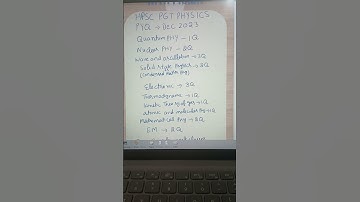 HPSC PGT PHYSICS
PYQ → Dec 2023
Quantum PHY - 1Q
Nuclear PHY - 8Q
Wave and oscillation → 3Q
Solid State Physics → 8Q
(condensed matter Phy)
Electronic → 3Q
Thermodynamic → 1Q
Kinetic Theory of gas → 1Q
atomic and molecular Phy → 1Q
Mathematical Phy → 8Q
EM → 8Q